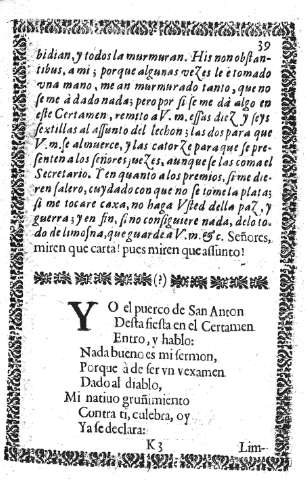 39
bidian, y todos la murmuran. His non obstan-
tibus, a mi; porque algunas vezes le è tomado
vna mano, me an murmurado tanto, que no
se me à dado nada; pero por si se me dà algo en
este Certamen, remito a V.m. essas diez y seys
sextillas al assunto del lechon; las dos para que
V.m. se almuerce, y las catorze para que se pre-
senten a los señores juezes, aunque se las coma el
Secretario. Y en quanto a los premios, si me die-
ren salero, cuydado con que no se tome la plata;
si me tocare caxa, no haga Vsted de la paz, y
guerra; y en fin, si no consiguiere nada, delo to-
do de limosna, que guarde a V.m. &c. Señores,
miren que carta! pues miren que assunto!
(?)
YO el puerco de San Anton
Desta fiesta en el Certamen
Entro, y hablo:
Nada bueno es mi sermon,
Porque à de ser vn vexamen
Dado al diablo,
Mi natiuo gruñimiento
Contra ti, culebra, oy
Ya se declara:
K3 Lim-